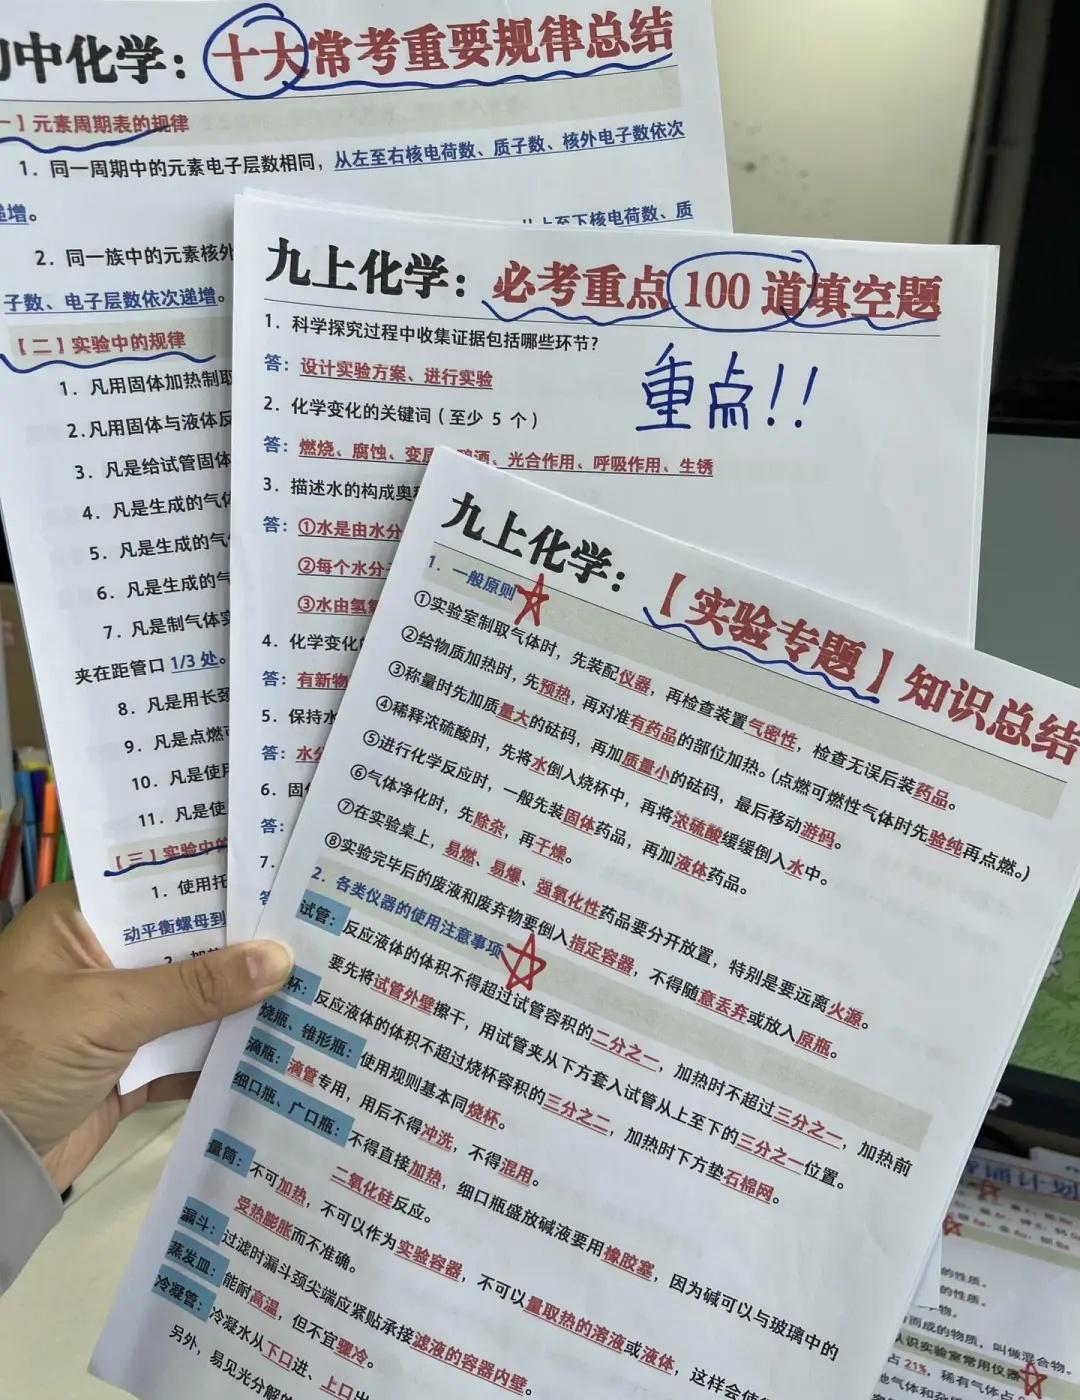 中化学：十大常考重要规律总结
一】元素周期表的规律
1. 同一周期中的元素电子层数相同，从左至右核电荷数、质子数、核外电子数依次
递增。
2. 同一族中的元素核外
从上至下核电荷数、质
子数、电子层数依次递增。
【二】实验中的规律
1. 凡用固体加热制取
2.凡用固体与液体反
3. 凡是给试管固体
4. 凡是生成的气体
5. 凡是生成的气
6. 凡是生成的气
7. 凡是制气体实
夹在距管口 1/3 处。
8. 凡是用长颈
9. 凡是点燃可
10. 凡是使用
11. 凡是使
【三】实验中的
1. 使用托
动平衡螺母到
2. 加热
九上化学：必考重点 100 道填空题
重点!!
1. 科学探究过程中收集证据包括哪些环节?
答：设计实验方案、进行实验
2. 化学变化的关键词（至少 5 个）
答：燃烧、腐蚀、变质、酿酒、光合作用、呼吸作用、生锈
3. 描述水的构成奥秘
答：①水是由水分
②每个水分子
③水由氢氧
4. 化学变化的
答：有新物
5. 保持水
答：水分
6. 固体
答：
7.
答
九上化学：【实验专题】知识总结
1. 一般原则
①实验室制取气体时，先装配仪器，再检查装置气密性，检查无误后装药品。
②给物质加热时，先预热，再对准有药品的部位加热。（点燃可燃性气体时先验纯再点燃。）
③称量时先加质量大的砝码，再加质量小的砝码，最后移动游码。
④稀释浓硫酸时，先将水倒入烧杯中，再将浓硫酸缓缓倒入水中。
⑤进行化学反应时，一般先装固体药品，再加液体药品。
⑥气体净化时，先除杂，再干燥。
⑦在实验桌上，易燃、易爆、强氧化性药品要分开放置，特别是要远离火源。
⑧实验完毕后的废液和废弃物要倒入指定容器，不得随意丢弃或放入原瓶。
2. 各类仪器的使用注意事项
试管：反应液体的体积不得超过试管容积的二分之一，加热时不超过三分之一，加热前
要先将试管外壁擦干，用试管夹从下方套入试管从上至下的三分之一位置。
杯：反应液体的体积不超过烧杯容积的三分之二，加热时下方垫石棉网。
烧瓶、锥形瓶：使用规则基本同烧杯。
滴瓶：滴管专用，用后不得冲洗，不得混用。
细口瓶、广口瓶：不得直接加热，细口瓶盛放碱液要用橡胶塞，因为碱可以与玻璃中的
二氧化硅反应。
量筒：不可加热，不可以作为实验容器，不可以量取热的溶液或液体，这样会使
受热膨胀而不准确。
漏斗：过滤时漏斗颈尖端应紧贴承接滤液的容器内壁。
蒸发皿：能耐高温，但不宜骤冷。
冷凝管：冷凝水从下口进、上口出
另外，易见光分解的
背诵计划
的性质。
的性质。
物。
而成的物质，叫做混合物。
认识实验室常用仪器
占 21%，稀有气体占
他气体和杂质